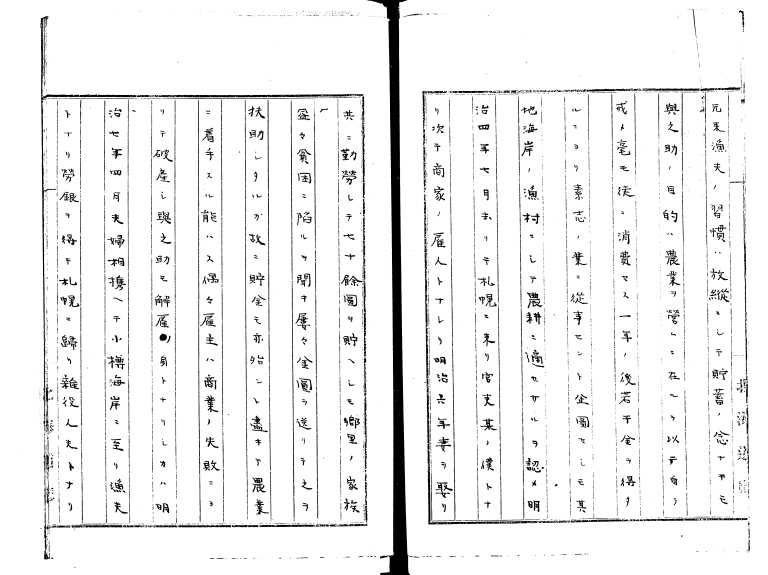 元来漁夫ノ習慣ハ放縦ニシテ貯蓄ノ念ナキモ
與之助ノ目的ハ農業ヲ營ムニ在ルヲ以テ自ラ
戒メ毫モ徒ニ消費セス一年ノ後若干金ヲ得タ
ルニヨリ素志ノ業ニ從事セント企圖セシモ其
地海岸ノ漁村ニシテ農耕ニ適セサルヲ認メ明
治四年七月去リテ札幌ニ来リ官吏某ノ僕トナ
リ次テ商家ノ雇人トナレリ明治六年妻ヲ娶リ
共ニ勤勞シテ七十餘圓ヲ貯ヘシモ郷里ノ家族
益々貧困ニ陥ルヲ聞キ屡々金圓ヲ送リテ之ヲ
扶助シタルガ故ニ貯金モ亦殆ント盡キテ農業
ニ着手スル能ハス偶々雇主ハ商業ノ失敗ニヨ
リテ破産シ與之助モ解雇ノ身トナリシカハ明
治七年四月夫婦相携ヘテ小樽海岸ニ至リ漁夫
トナリ勞銀ヲ得テ札幌ニ歸リ雑役人夫トナリ